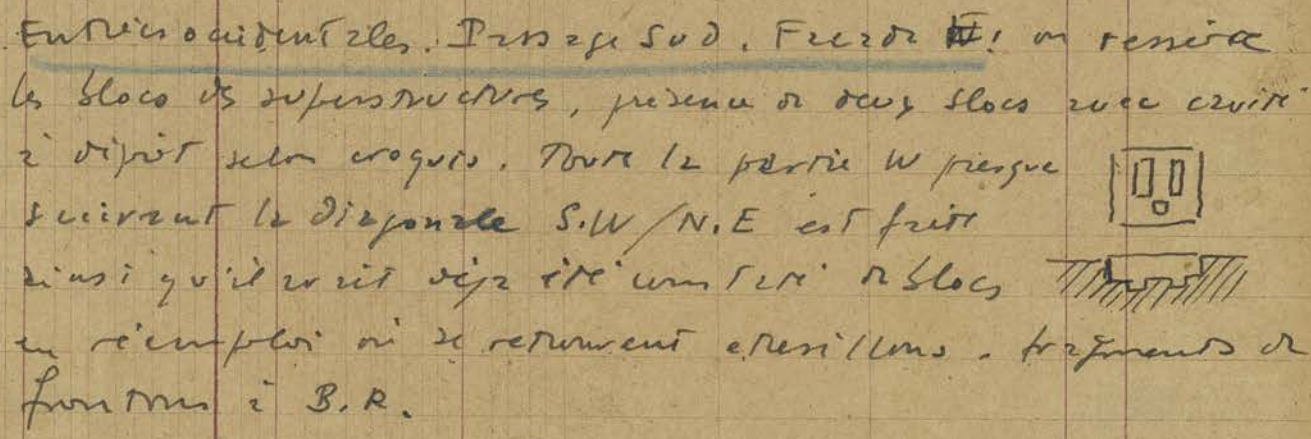 Entrées occidentales. Passage Sud. Face de W: on resserre
les blocs des superstructures, présence de deux blocs avec cavité
à dépôt selon croquis. Toute la partie W presque
suivant la diagonale S.W/N.E est faite
ainsi qu'il avait déjà été constaté de blocs
en réemploi où se retrouvent etresillons. fragments de
frontons à B.R.